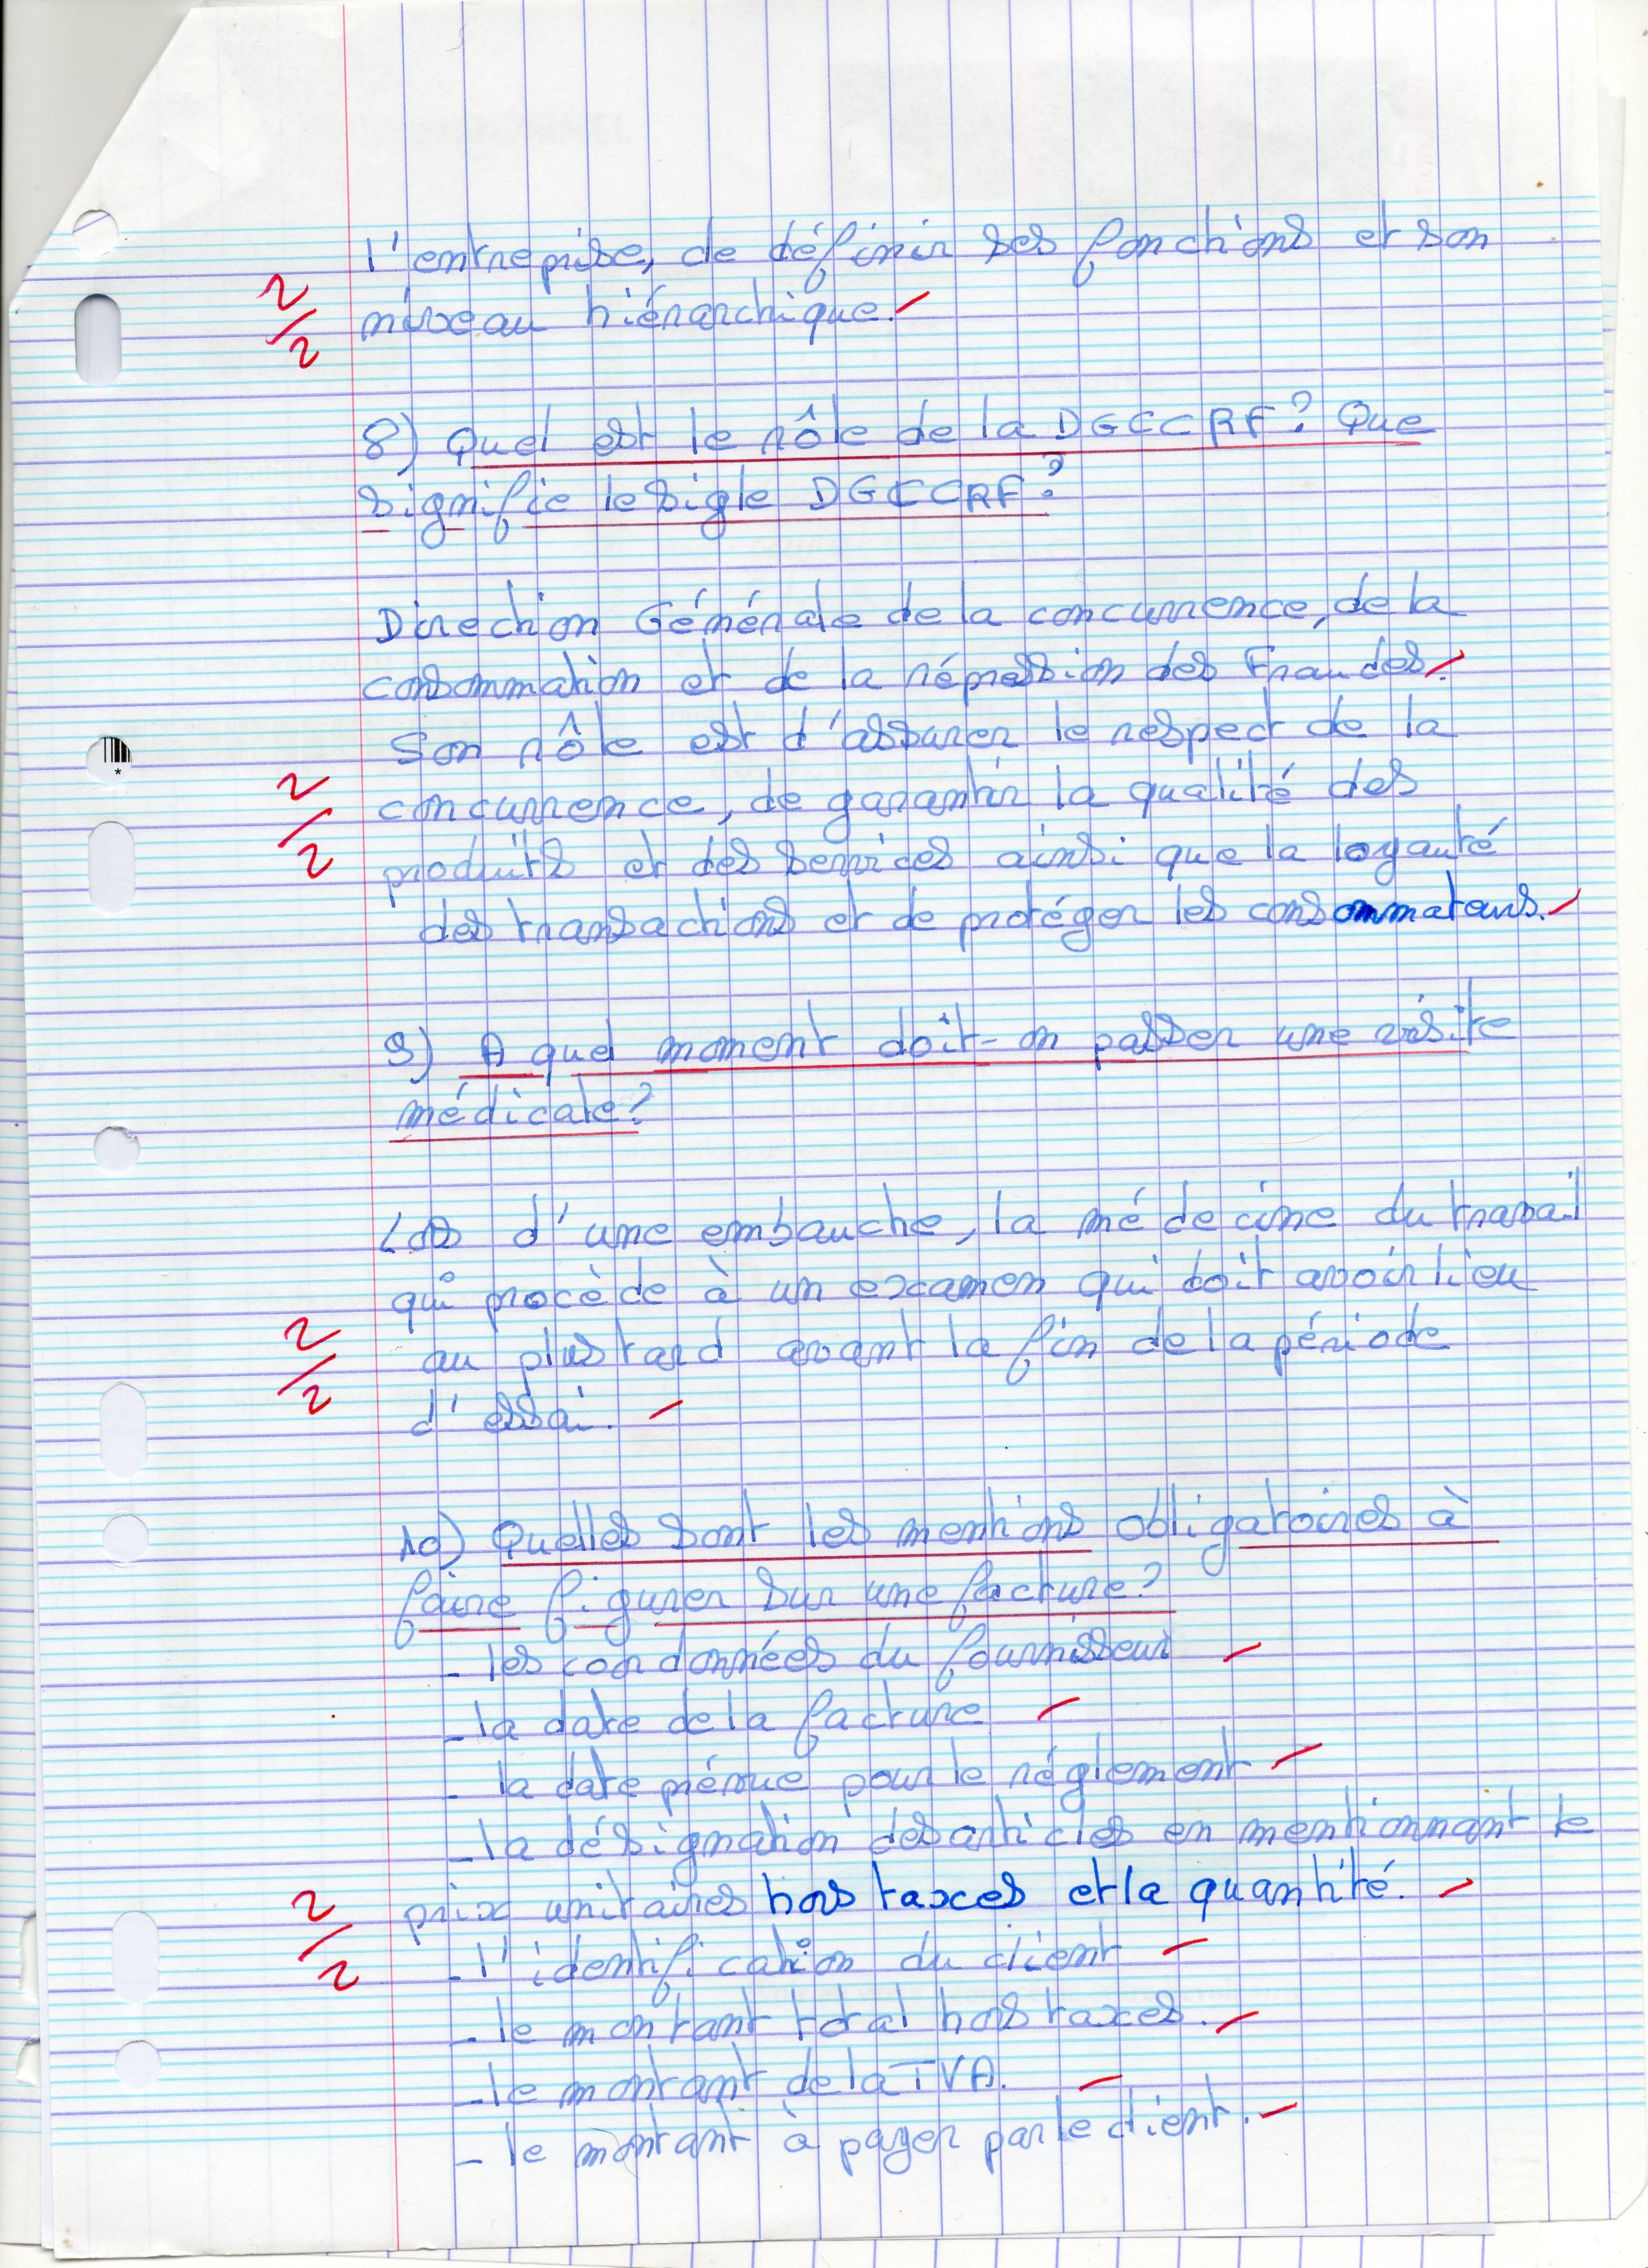 l'entreprise, de définir ses fonctions et son
niveau hiérarchique.
2/2
8) Quel est le rôle de la DGCCRF? Que
signifie le sigle DGCCRF?
Direction Générale de la concurrence, de la
consommation et de la répression des Fraudes.
Son rôle est d'assurer le respect de la
concurrence, de garantir la qualité des
2/2
produits et des services ainsi que la loyauté
des transactions et de protéger les consommateurs.
9) A quel moment doit-on passer une visite
médicale?
Lors d'une embauche, la médecine du travail
qui procède à un examen qui doit avoir lieu
2/2
au plus tard avant la fin de la période
d'essai.
10) Quelles sont les mentions obligatoires à
faire figurer sur une facture?
- les coordonnées du fournisseur
- la date de la facture
- la date prévue pour le réglement
- la désignation des articles en mentionnant le
prix unitaires hors taxes et la quantité.
2/2
- l'identification du client
- le montant total hors taxes.
- le montant de la TVA.
- le montant à payer par le client.